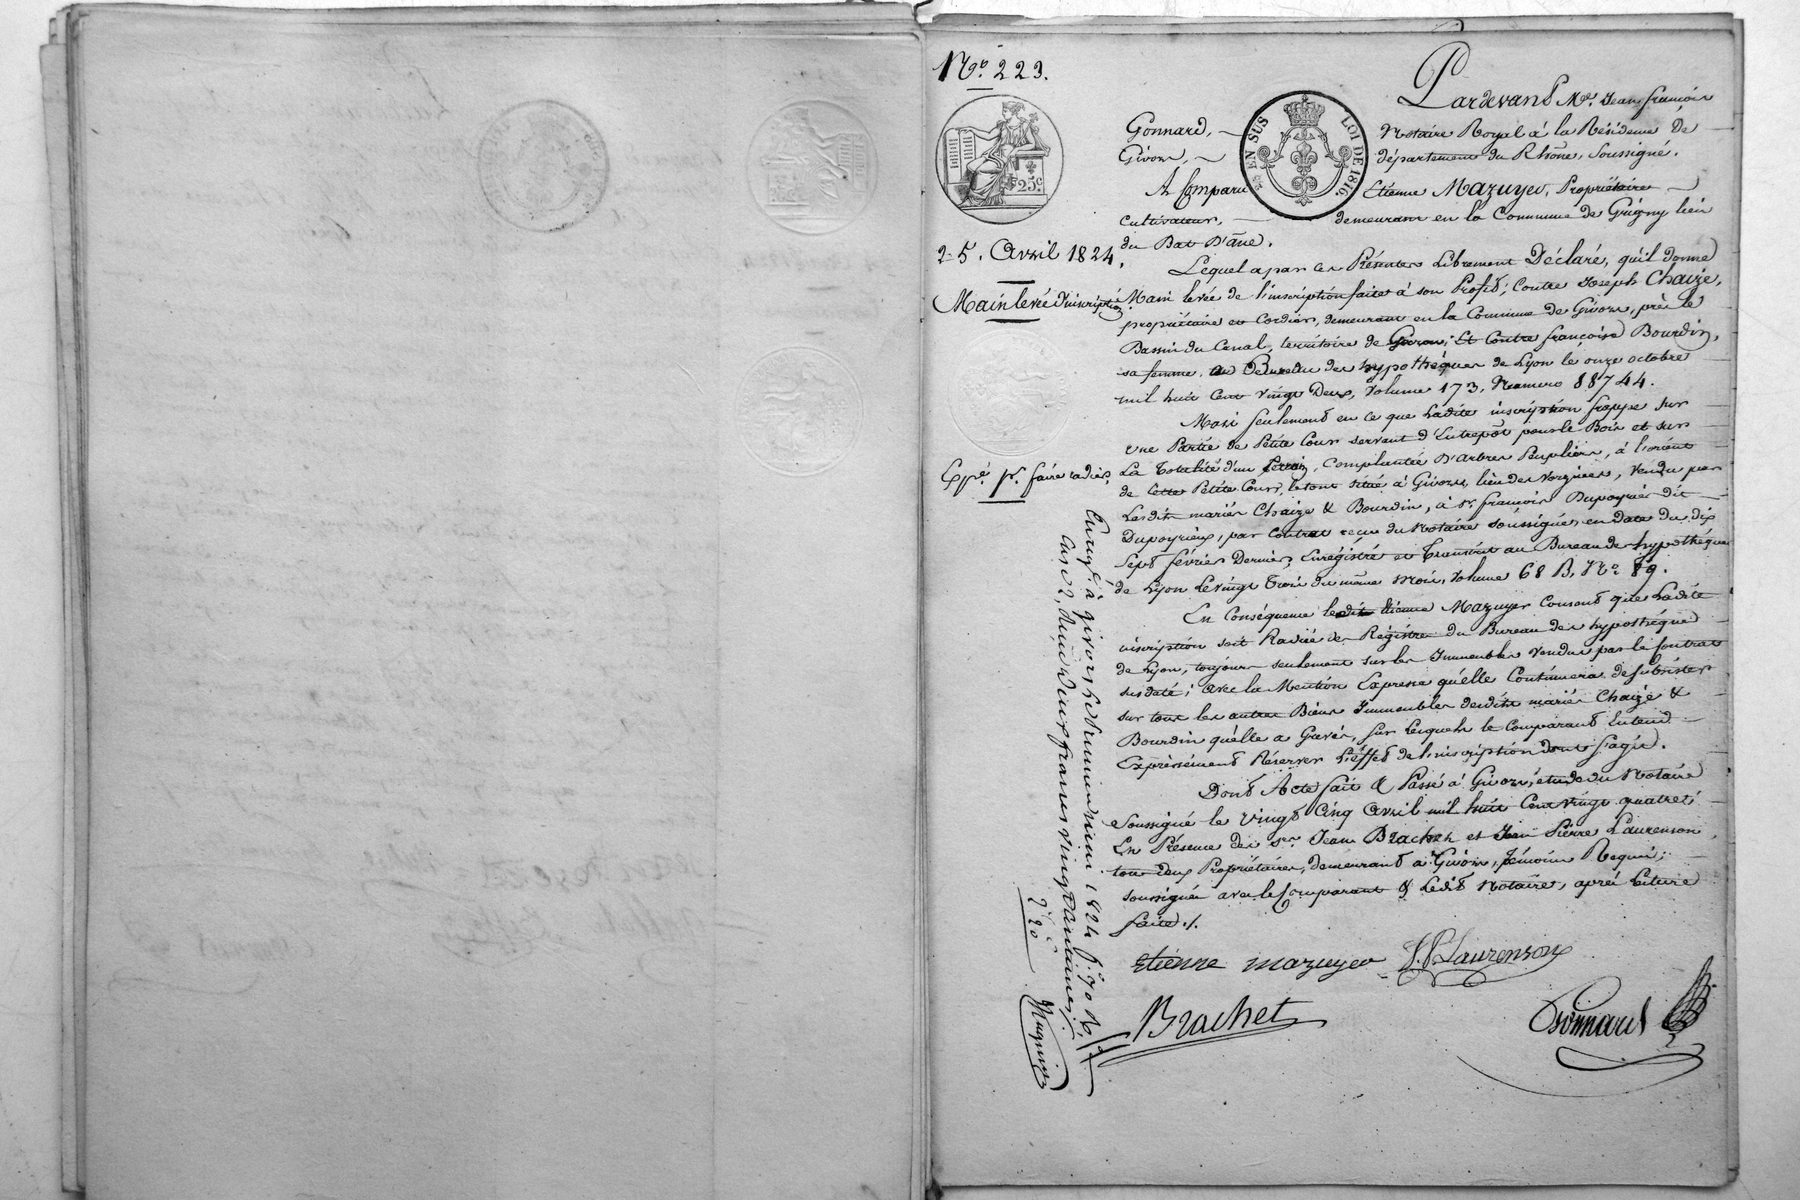 N.º 223.
25.c
EN SUS
LOI DE 1816.
25. Avril 1824.
Main levée d'inscription
Exp.é p.r faire radier.
Pardevant M.e Jean françois
Gonnard, Notaire Royal à la Résidence de
Givors, département du Rhône, soussigné.
A Comparu Etienne Mazuyer, Propriétaire
cultivateur, demeurant en la Commune de Grigny lieu
du Bat d'âne.
Lequel a par ces Présentes librement Déclaré, qu'il donne
Main levée de l'inscription faite à son Profit; Contre Joseph Chaize,
propriétaire et Cordier, demeurant en la Commune de Givors, près le
Bassin du Canal, territoire de Et Contre françoise Bourdin,
sa femme, au Bureau des hypothèques de Lyon le onze octobre
mil huit cent vingt Deux, Volume 173, Numero 88744.
Mais seulement en ce que Ladite inscription frappe sur
une Partie de Petite Cour servant d'Entrepôt pour le Bois et sur
La totalité d'un terrain, Complantée D'arbres Peupliers, à l'orient
de Cette Petite Cour, le tout situé à Givors, lieu des Vorgines, Vendu par
Lesdits mariés Chaize & Bourdin, à Sr. françois Dupoyrier dit
Dupoyrieux, par Contrat recu du Notaire soussigné, en Date du dix
Sept février Dernier, Enrégistré et Transcrit au Bureau des hypothéques
de Lyon Le vingt Trois du même mois, Volume 68 B, N.º 89.
En Conséquence ledit Etienne Mazuyer Consent que Ladite
inscription soit Radiée des Régistres du Bureau des hypothéques
de Lyon, toujours seulement sur les Immeubles Vendus par le Contrat
susdaté; avec la Mention Expresse qu'elle Continuera de subsister
sur tous les autres Biens Immeubles desdits mariés Chaize &
Bourdin qu'elle a Gravés, sur lesquels le Comparant Entend
Expressément Réserver L'éffet de l'inscription dont s'agit.
Dont Acte fait & Passé à Givors, étude du Notaire
Soussigné le vingt Cinq Avril mil huit Cent vingt quatre;
En Présence des srs. Jean Brachet et Jean Pierre Laurenson
tous deux Propriétaires, demeurant à Givors, témoins Requis;
soussignés avec le Comparant & Ledit Notaire, après lecture
faite ./.
Etienne mazuyer J. P. Laurenson
Brachet
Gonnard
Enreg.é à Givors le 1824 f.º 70
Case 2, deux francs vingt centimes
2 f 20 c